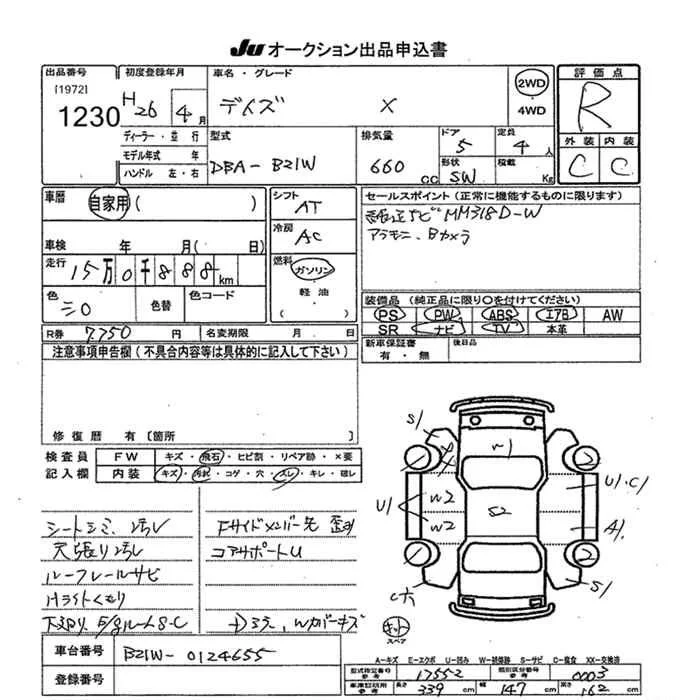 JU オークション出品申込書
出品番号
[1972]
1230
初度登録年月
H26 4月
車名・グレード
デイズ X
2WD
4WD
評価点
R
外装 内装
C C
ディーラー・並行
モデル年式 年
ハンドル 左・右
型式
DBA-B21W
排気量
660 cc
ドア
5
形状
SW
定員
4人
積載
Kg
車歴
自家用( )
車検 年 月( 日)
走行 15万0千888km
色
シロ
色替
色コード
シフト
AT
冷房
AC
燃料
ガソリン
軽油
( )
セールスポイント(正常に機能するものに限ります)
純正ナビMM318D-W
アラモニ、Bカメラ
装備品(純正品に限り○を付けてください)
PS PW ABS エアB AW
SR ナビ TV 本革
新車保証書
有・無
後日品
R券 7.750 円
名変期限 月 日
注意事項申告欄(不具合内容等は具体的に記入して下さい)
修復歴 有〔箇所 〕
検査員
記入欄
FW キズ・飛石・ヒビ割・リペア跡・×要
内装 キズ・汚れ・コゲ・穴・スレ・キレ・破レ
シートシミ、汚レ
天張り汚レ
ルーフレールサビ
Hライトくもり
下回り、E/gルームS・C
Fサイドメンバー先 歪み
コアサポートU
S1
W1
U1
W2
W2
S2
U1・C1
A1
S1
キット
スペア
A-キズ E-エクボ U-凹み W-補修跡 S-サビ C-腐食 XX-交換済
車台番号
B21W-0124655
登録番号
型式指定番号
参考
17552
類別区分番号
参考
0003
車庫証明用
参考
長さ
339 cm
幅
147 cm
高さ
162 cm